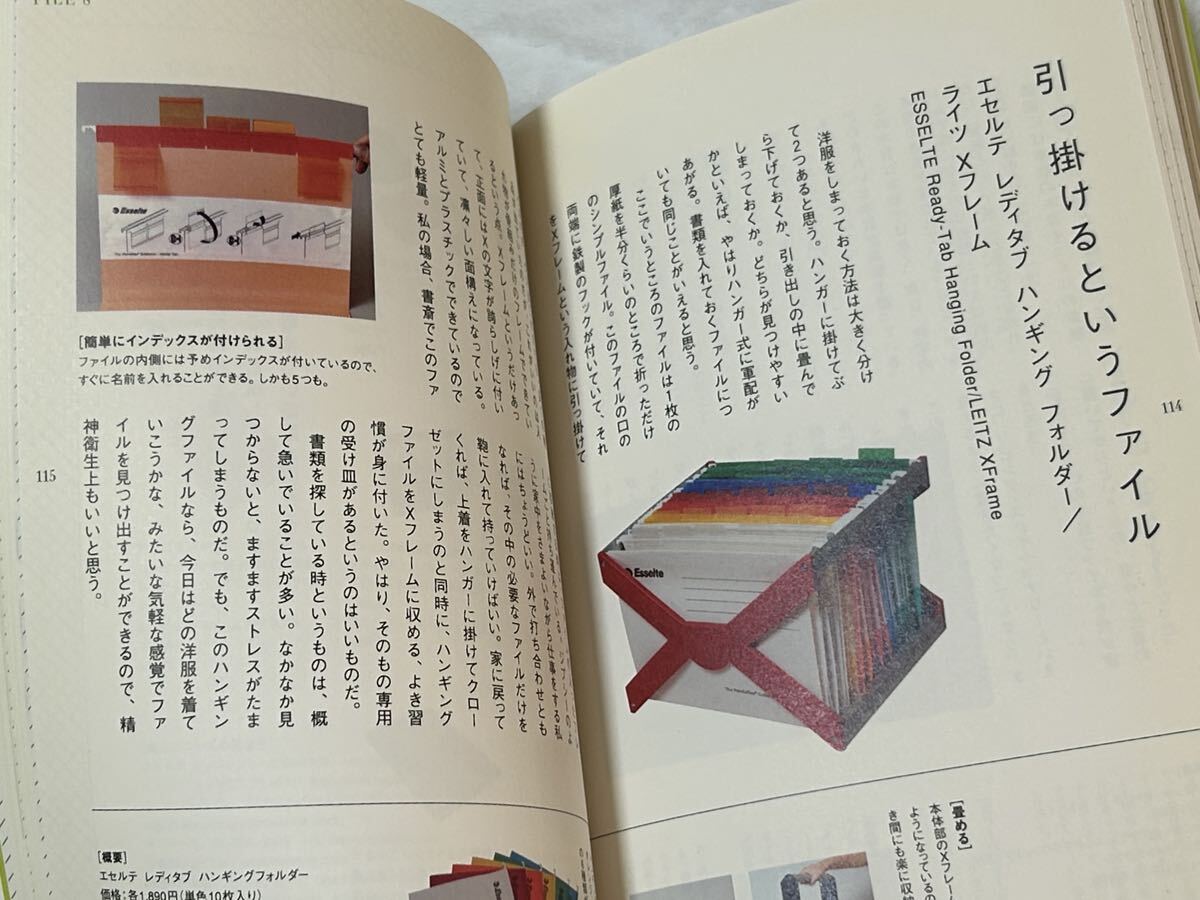 引っ掛けるというファイル
エセルテ レディタブ ハンギング フォルダー/
ライツ Xフレーム
ESSELTE Ready Tab Hanging Folder/LEITZ XFrame
114
洋服をしまっておく方法は大きく分け
て2つあると思う。ハンガーに掛けてぶ
ら下げておくか、引き出しの中に畳んで
しまっておくか。どちらが見つけやすい
かといえば、やはりハンガー式に軍配が
あがる。書類を入れておくファイルにつ
いても同じことがいえると思う。
ここでいうところのファイルは1枚の
厚紙を半分くらいのところで折っただけ
のシンプルファイル。このファイルの口の
両端に鉄製のフックが付いていて、それ
をXフレームという入れ物に引っ掛けて
Esselte
[畳める]
本体部のXフレー
ようになっているの
き間にも楽に収納
FILE 8
Esselte
[簡単にインデックスが付けられる]
ファイルの内側には予めインデックスが付いているので、
すぐに名前を入れることができる。しかも5つも。
るという点。Xフレームというだけあっ
て、正面にはXの文字が誇らしげに付い
ていて、凛々しい面構えになっている。
アルミとプラスチックでできているので
とても軽量。私の場合、書斎でこのファ
うに家中をさまよいながら仕事をする私
にはちょうどいい。外で打ち合わせとも
なれば、その中の必要なファイルだけを
鞄に入れて持っていけばいい。家に戻って
くれば、上着をハンガーに掛けてクロー
ゼットにしまうのと同時に、ハンギング
ファイルをXフレームに収める、よき習
慣が身に付いた。やはり、そのもの専用
の受け皿があるというのはいいものだ。
書類を探している時というものは、概
して急いでいることが多い。なかなか見
つからないと、ますますストレスがたま
ってしまうものだ。でも、このハンギン
グファイルなら、今日はどの洋服を着て
いこうかな、みたいな気軽な感覚でファ
イルを見つけ出すことができるので、精
神衛生上もいいと思う。
115
[概要]
エセルテ レディタブ ハンギングフォルダー
価格:各1,890円(単色10枚入り)